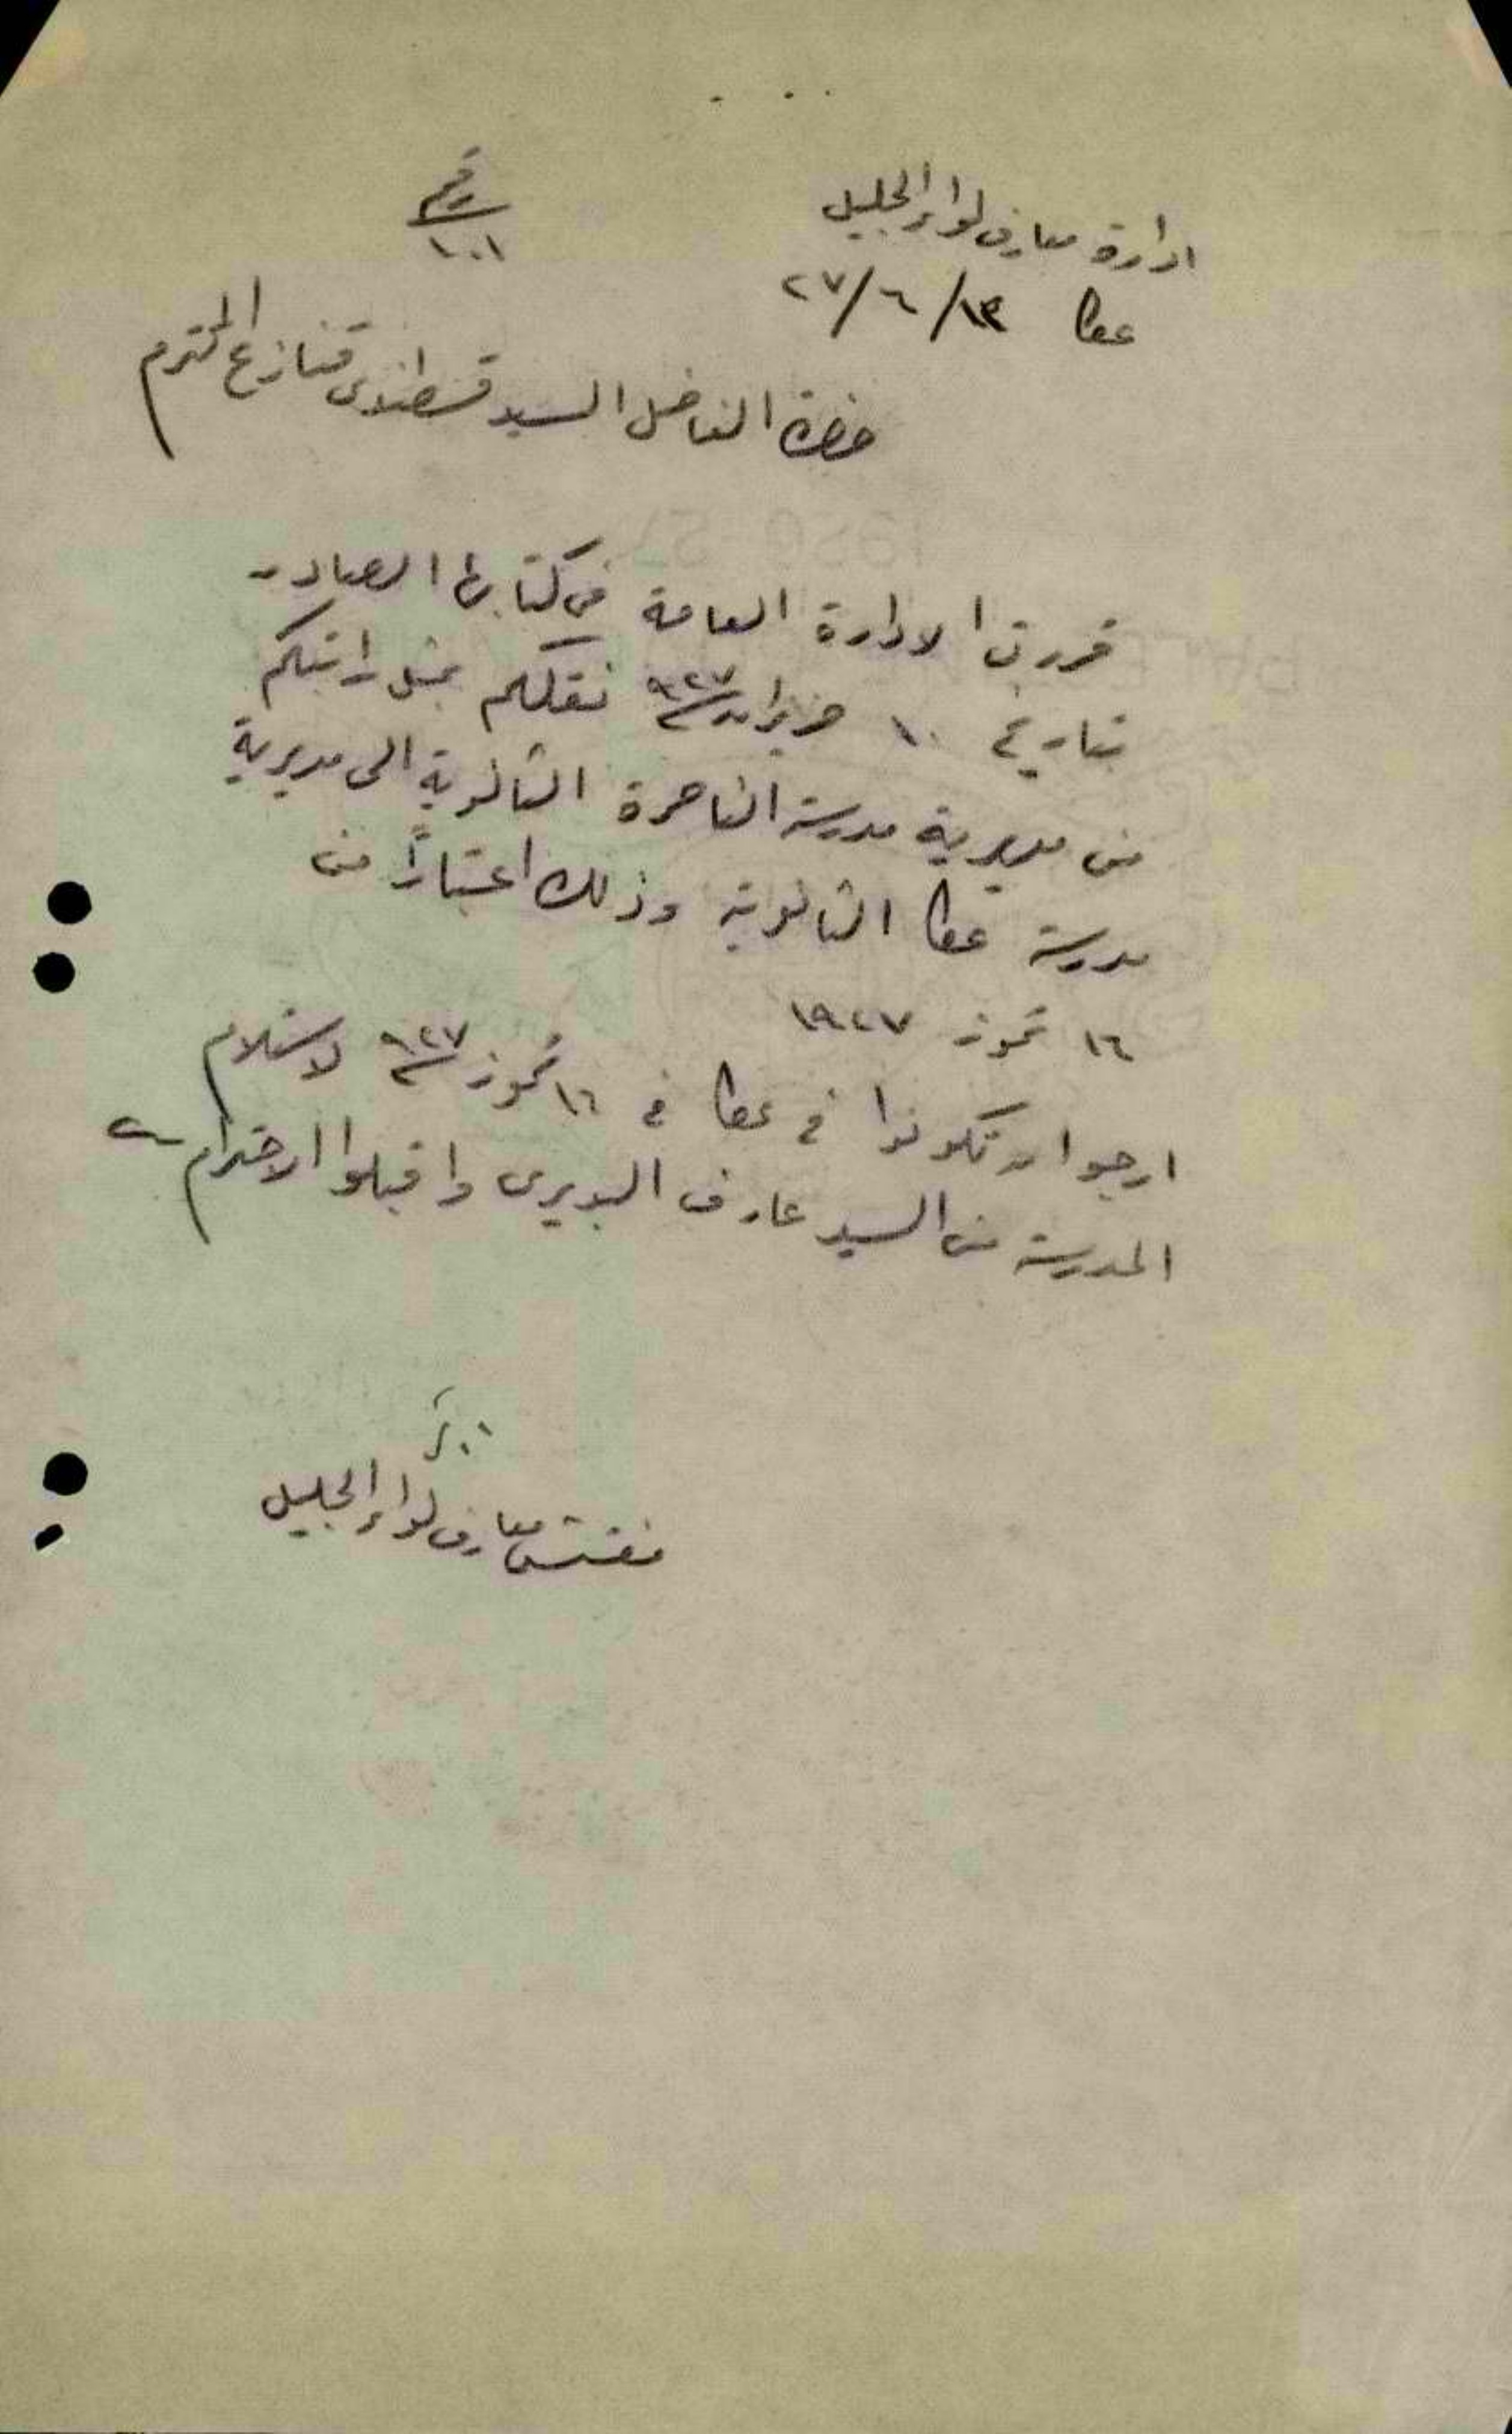 ادارة معارف لواء الجليل
رقم
١٠١
عكا ١٣/٦/٢٧
حضرة الفاضل السيد قسطندي قنازع المحترم
قررت الادارة العامة في كتابها الصادر
بتاريخ ١٠ حزيران سنة ٩٢٧ نقلكم بمثل راتبكم
من مديرية مدرسة الناصرة الثانوية الى مديرية
مدرسة عكا الثانوية وذلك اعتباراً من
١٦ تموز ١٩٢٧
ارجو ان تكونوا في عكا في ١٦ تموز سنة ٩٢٧ لاستلام
المدرسة من السيد عارف البديري واقبلوا الاحترام
مفتش معارف لواء الجليل